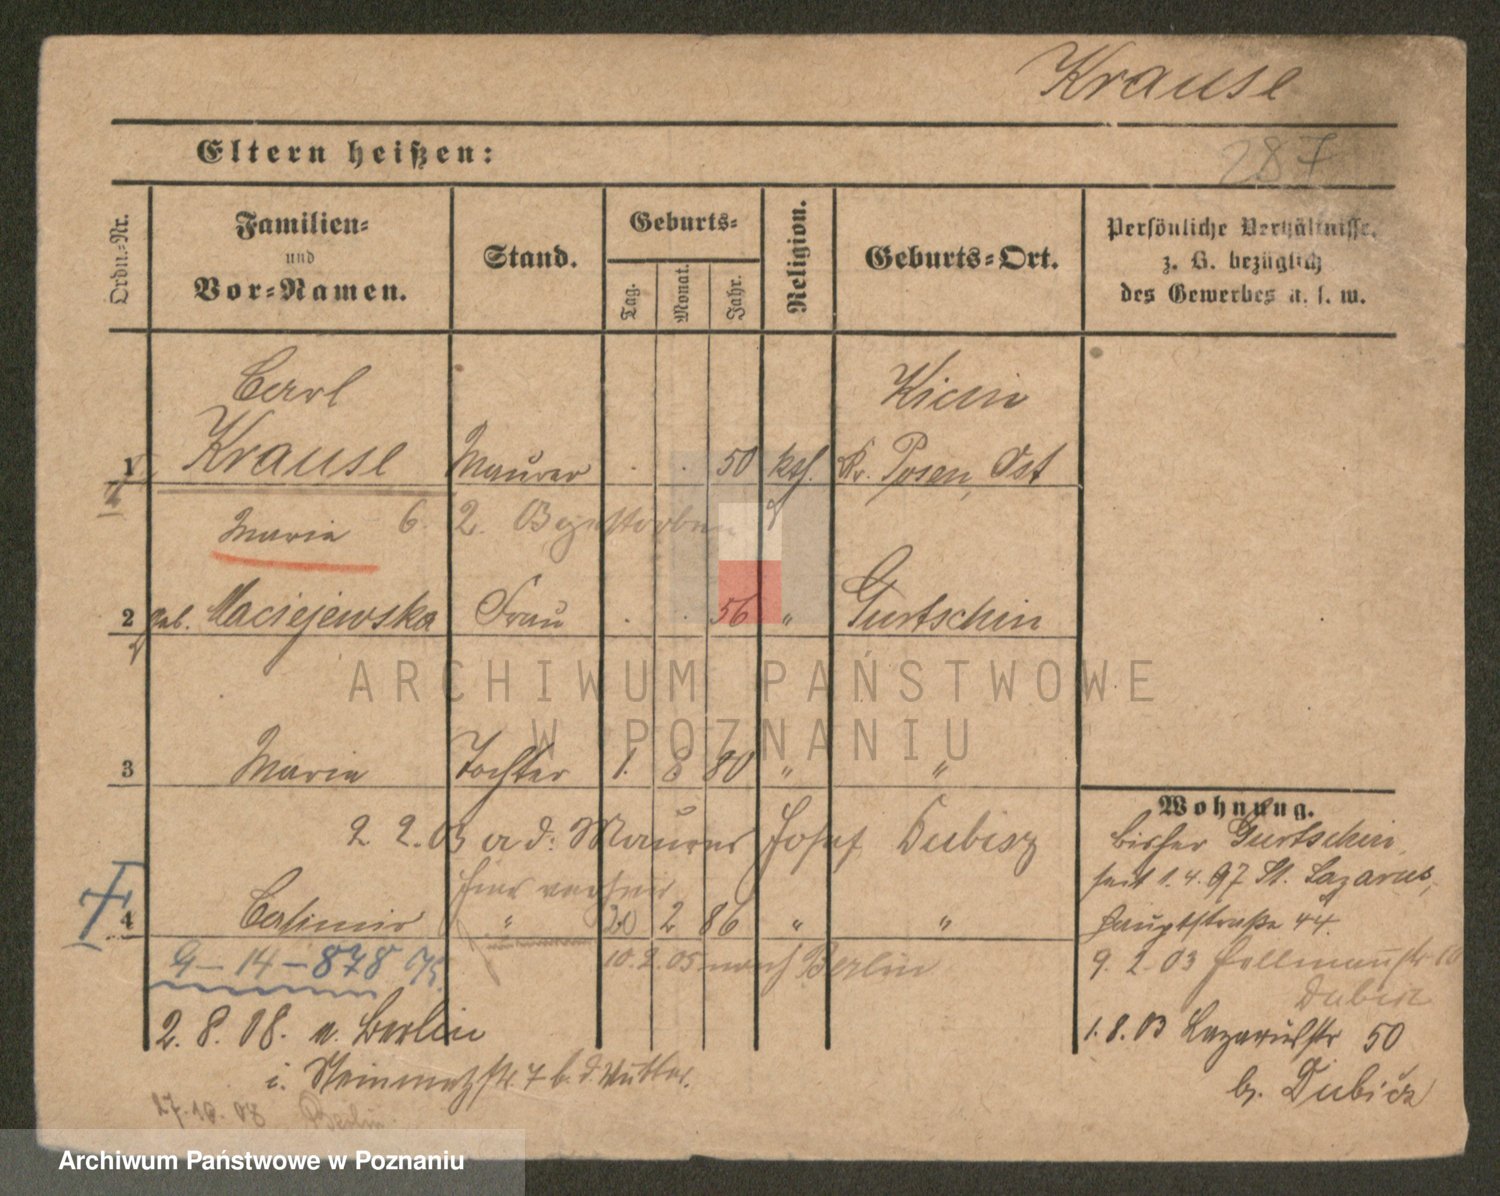 Krause
287
Eltern heißen:
Ordn.-Nr.
Familien-
und
Vor-Namen.
Stand.
Geburts-
Tag.
Monat.
Jahr.
Religion.
Geburts-Ort.
Persönliche Verhältnisse,
z. B. bezüglich
des Gewerbes u. s. w.
Carl
Kicin
1 Krause Maurer . . 50 kth. Kr. Posen, Ost
Maria
2 geb. Maciejewska Frau . . 56 " Gurtschin
ARCHIWUM PAŃSTWOWE
W POZNANIU
3 Maria Tochter 1. 8 80 " "
2 2.03 a d: Maurer Josef Dubisz
4 Casimir " 20 2 86 " "
G-14-878
10.2.05 nach Berlin
2. 8. 08. n. Berlin
i. Steinmetzstr. 7 b. d. Mutter.
27.10.08 Berlin.
Wohnung.
bisher Gurtschin
seit 1.4.97 St. Lazarus,
Hauptstraße 44.
9. 2. 03
1.8.03 Lazarusstr 50
b. Dubisz
Archiwum Państwowe w Poznaniu